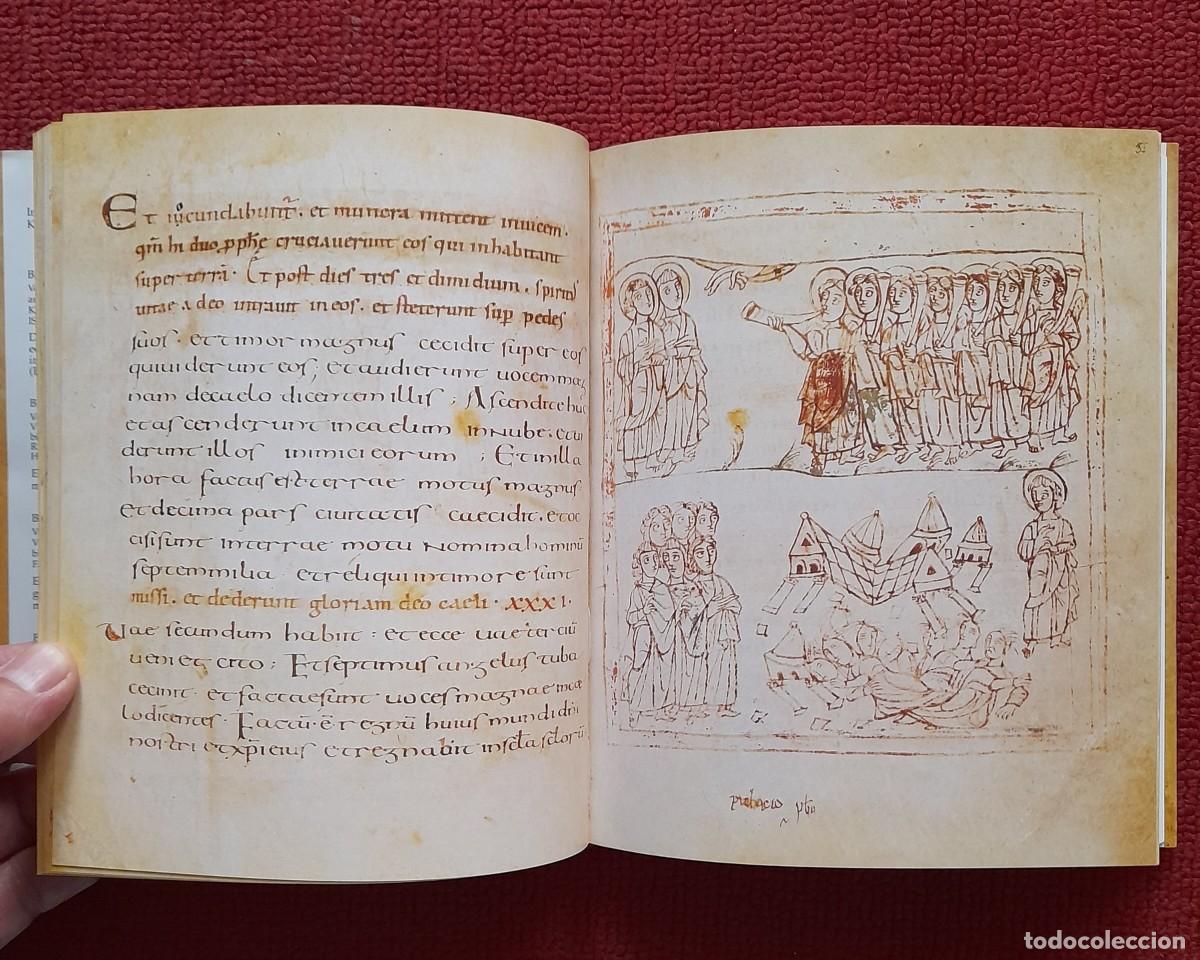 Et iocundabunt̄. et munera mittent invicem.
qm̄ hi duo ꝓphē cruciaverunt eos qui inhabitant
super terrā. Et post dies tres et dimidium. spiritus
vitae a deo intravit in eos. et steterunt sup̄ pedes
suos. et timor magnus cecidit super eos
qui viderunt eos; et audierunt vocem mag
nam de caelo dicentem illis; Ascendite huc
et ascenderunt in caelum in nube. et vi
derunt illos inimici eorum; Et in illa
hora factus est terrae motus magnus
et decima pars civitatis caecidit. et oc
cisi sunt in terrae motu nomina hominū
septem milia et reliqui in timore sunt
missi. et dederunt gloriam deo caeli. XXXI.
Vae secundum habiit: et ecce vae terciū
veniet cito; Et septimus angelus tuba
cecinit et factae sunt voces magnae in cae
lo dicentes. Factū ē regnū huius mundi dn̄i
nostri et xp̄i eius et regnabit in sc̄la sc̄lorū
todocoleccion